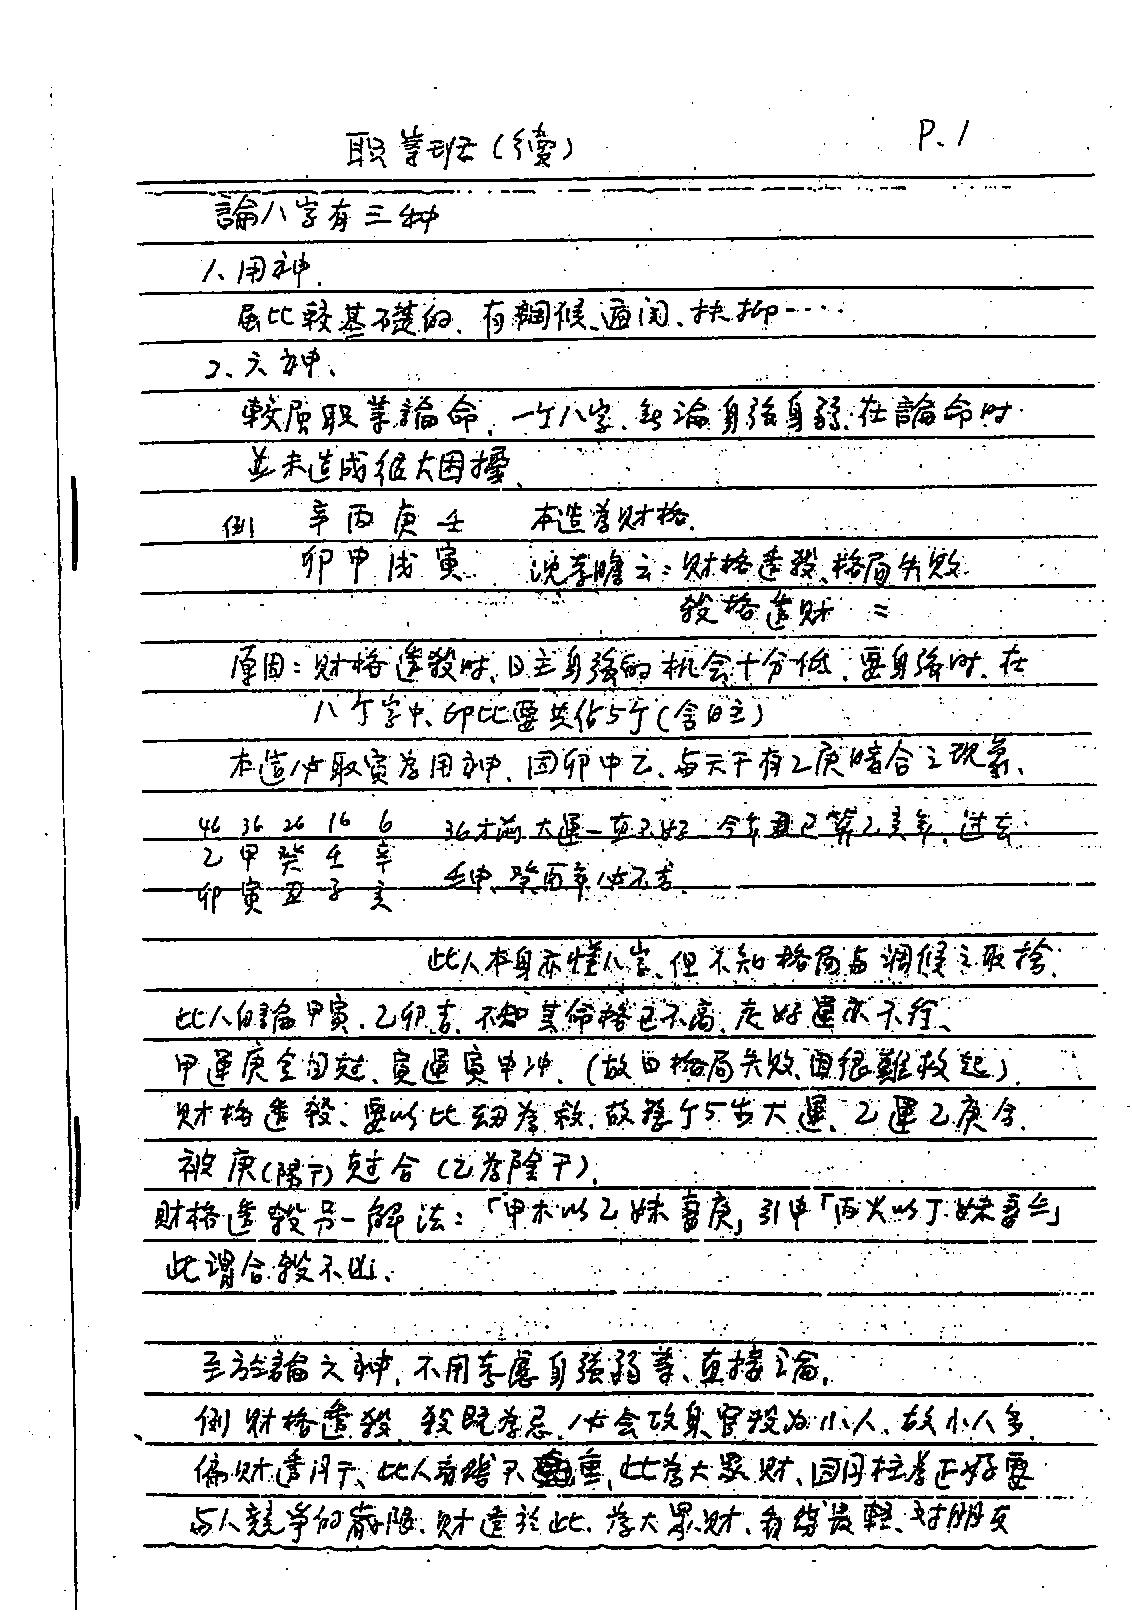 职業班(續) P.1
論八字有三种
1、用神.
屬比較基礎的、有調候、通関、扶抑……
2、六神、
較屬职業論命、一个八字、無論身強身弱、在論命时
並未造成很大困擾、
例 辛丙庚壬 本造為财格.
卯申戌寅 沈孝瞻云:财格透殺、格局失败
殺格透财 =
原因:财格透殺时、日主身強的机会十分低、要身強时、在
八个字中、印比要共佔5个(含日主)
本造必取寅為用神、因卯中乙、与天干有乙庚暗合之现象、
46 36 26 16 6 36才前大運一直不好 今年丑已算乙亥年、过去
乙甲癸壬辛 壬申、癸酉年必不吉.
卯寅丑子亥
此人本身亦懂八字、但不知格局与調候之取捨.
此人自論甲寅、乙卯吉、不知其命格已不高、走好運亦不佳、
甲運庚金回尅、寅運寅申冲、(故曰格局失败、因很難救起)、
财格透殺、要以比劫為救、故整个5步大運、乙運乙庚合、
被庚(陽干)尅合(乙為陰干)、
财格透殺另一解法:「甲木以乙妹妻庚」引申「丙火以丁妹妻壬」
此謂合殺不凶、
至於論六神、不用考慮身強弱等、直接論、
例财格透殺、殺既為忌、必会攻身、官殺为小人、故小人多、
偏财透月干、此人看錢不重、此為大眾财、因月柱為正好要
与人競爭的歲限、财透於此、為大眾财、看錢最輕、对朋友